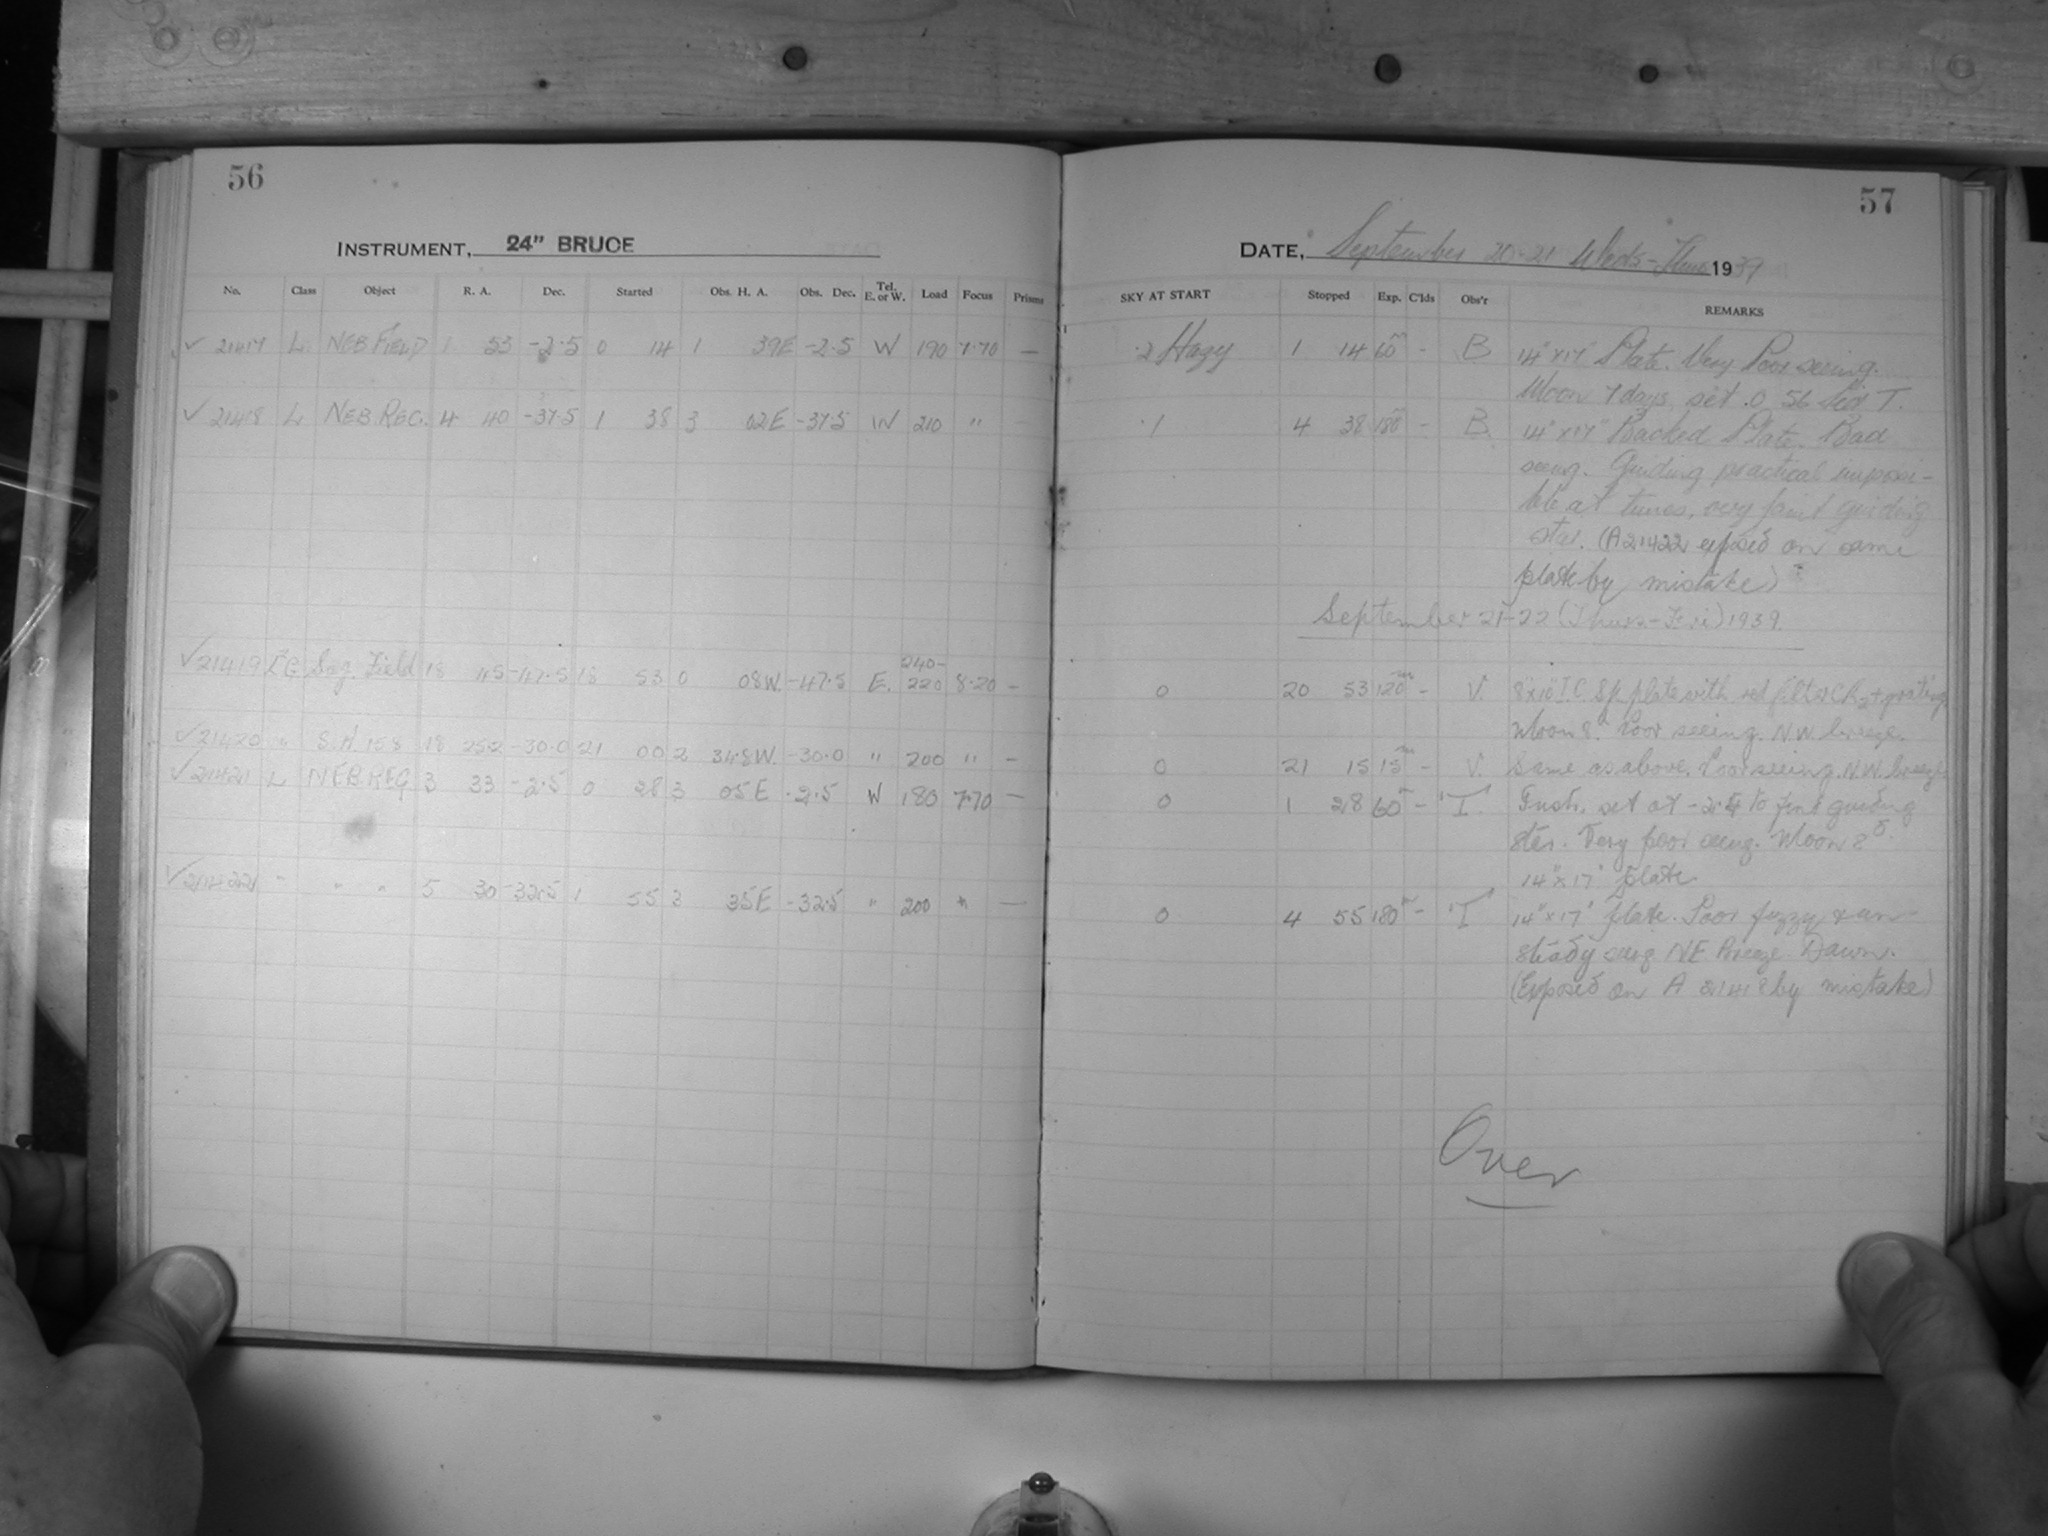 56
INSTRUMENT, 24" BRUCE
No. Class Object R. A. Dec. Started Obs. H. A. Obs. Dec. Tel. E. or W. Load Focus Prisms
✓ 21417 L NEB FIELD 1 53 -2.5 0 14 1 39E -2.5 W 190 7.70 —
✓ 21418 L NEB REG. 4 40 -37.5 1 38 3 02E -37.5 W 210 "
240-
✓ 21419 Sag. Field 18 45 -47.5 18 53 0 08W. -47.5 E. 220 8.20 —
✓ 21420 " S.A 158 18 25.2 -30.0 21 00 2 34.8W. -30.0 " 200 " —
✓ 21421 L NEB REG 3 33 -2.5 0 28 3 05E -2.5 W 180 7.70 —
✓ 21422 " " " 5 30 -32.5 1 55 3 35E -32.5 " 200 " —
57
DATE, September 20-21 Weds-Thurs 1939
SKY AT START Stopped Exp. C'lds Obs'r REMARKS
.2 Hazy 1 14 60m - B 14"x17" Plate. Very Poor seeing.
Moon 7 days, set 0 56 Sid T.
.1 4 38 180m - B. 14"x17" Backed Plate. Bad
seeing. Guiding practical impossi-
ble at times, very faint guiding
star. (A21422 exposed on same
plate by mistake)
September 21-22 (Thurs-Fri) 1939.
0 20 53 120m - V. 8"x10" I.C. Sp. plate with red filter + grating
Moon 8d. Poor seeing. N.W. breeze.
0 21 15 15m - V. Same as above. Poor seeing. N.W. breeze
0 1 28 60m - "T" Inst. set at -2.4 to find guiding
star. Very poor seeing. Moon
14"x17" plate
0 4 55 180m - "T" 14"x17" plate. Poor fuzzy & un-
steady seeing NE Breeze. Dawn.
(Exposed on A 21418 by mistake)
Over